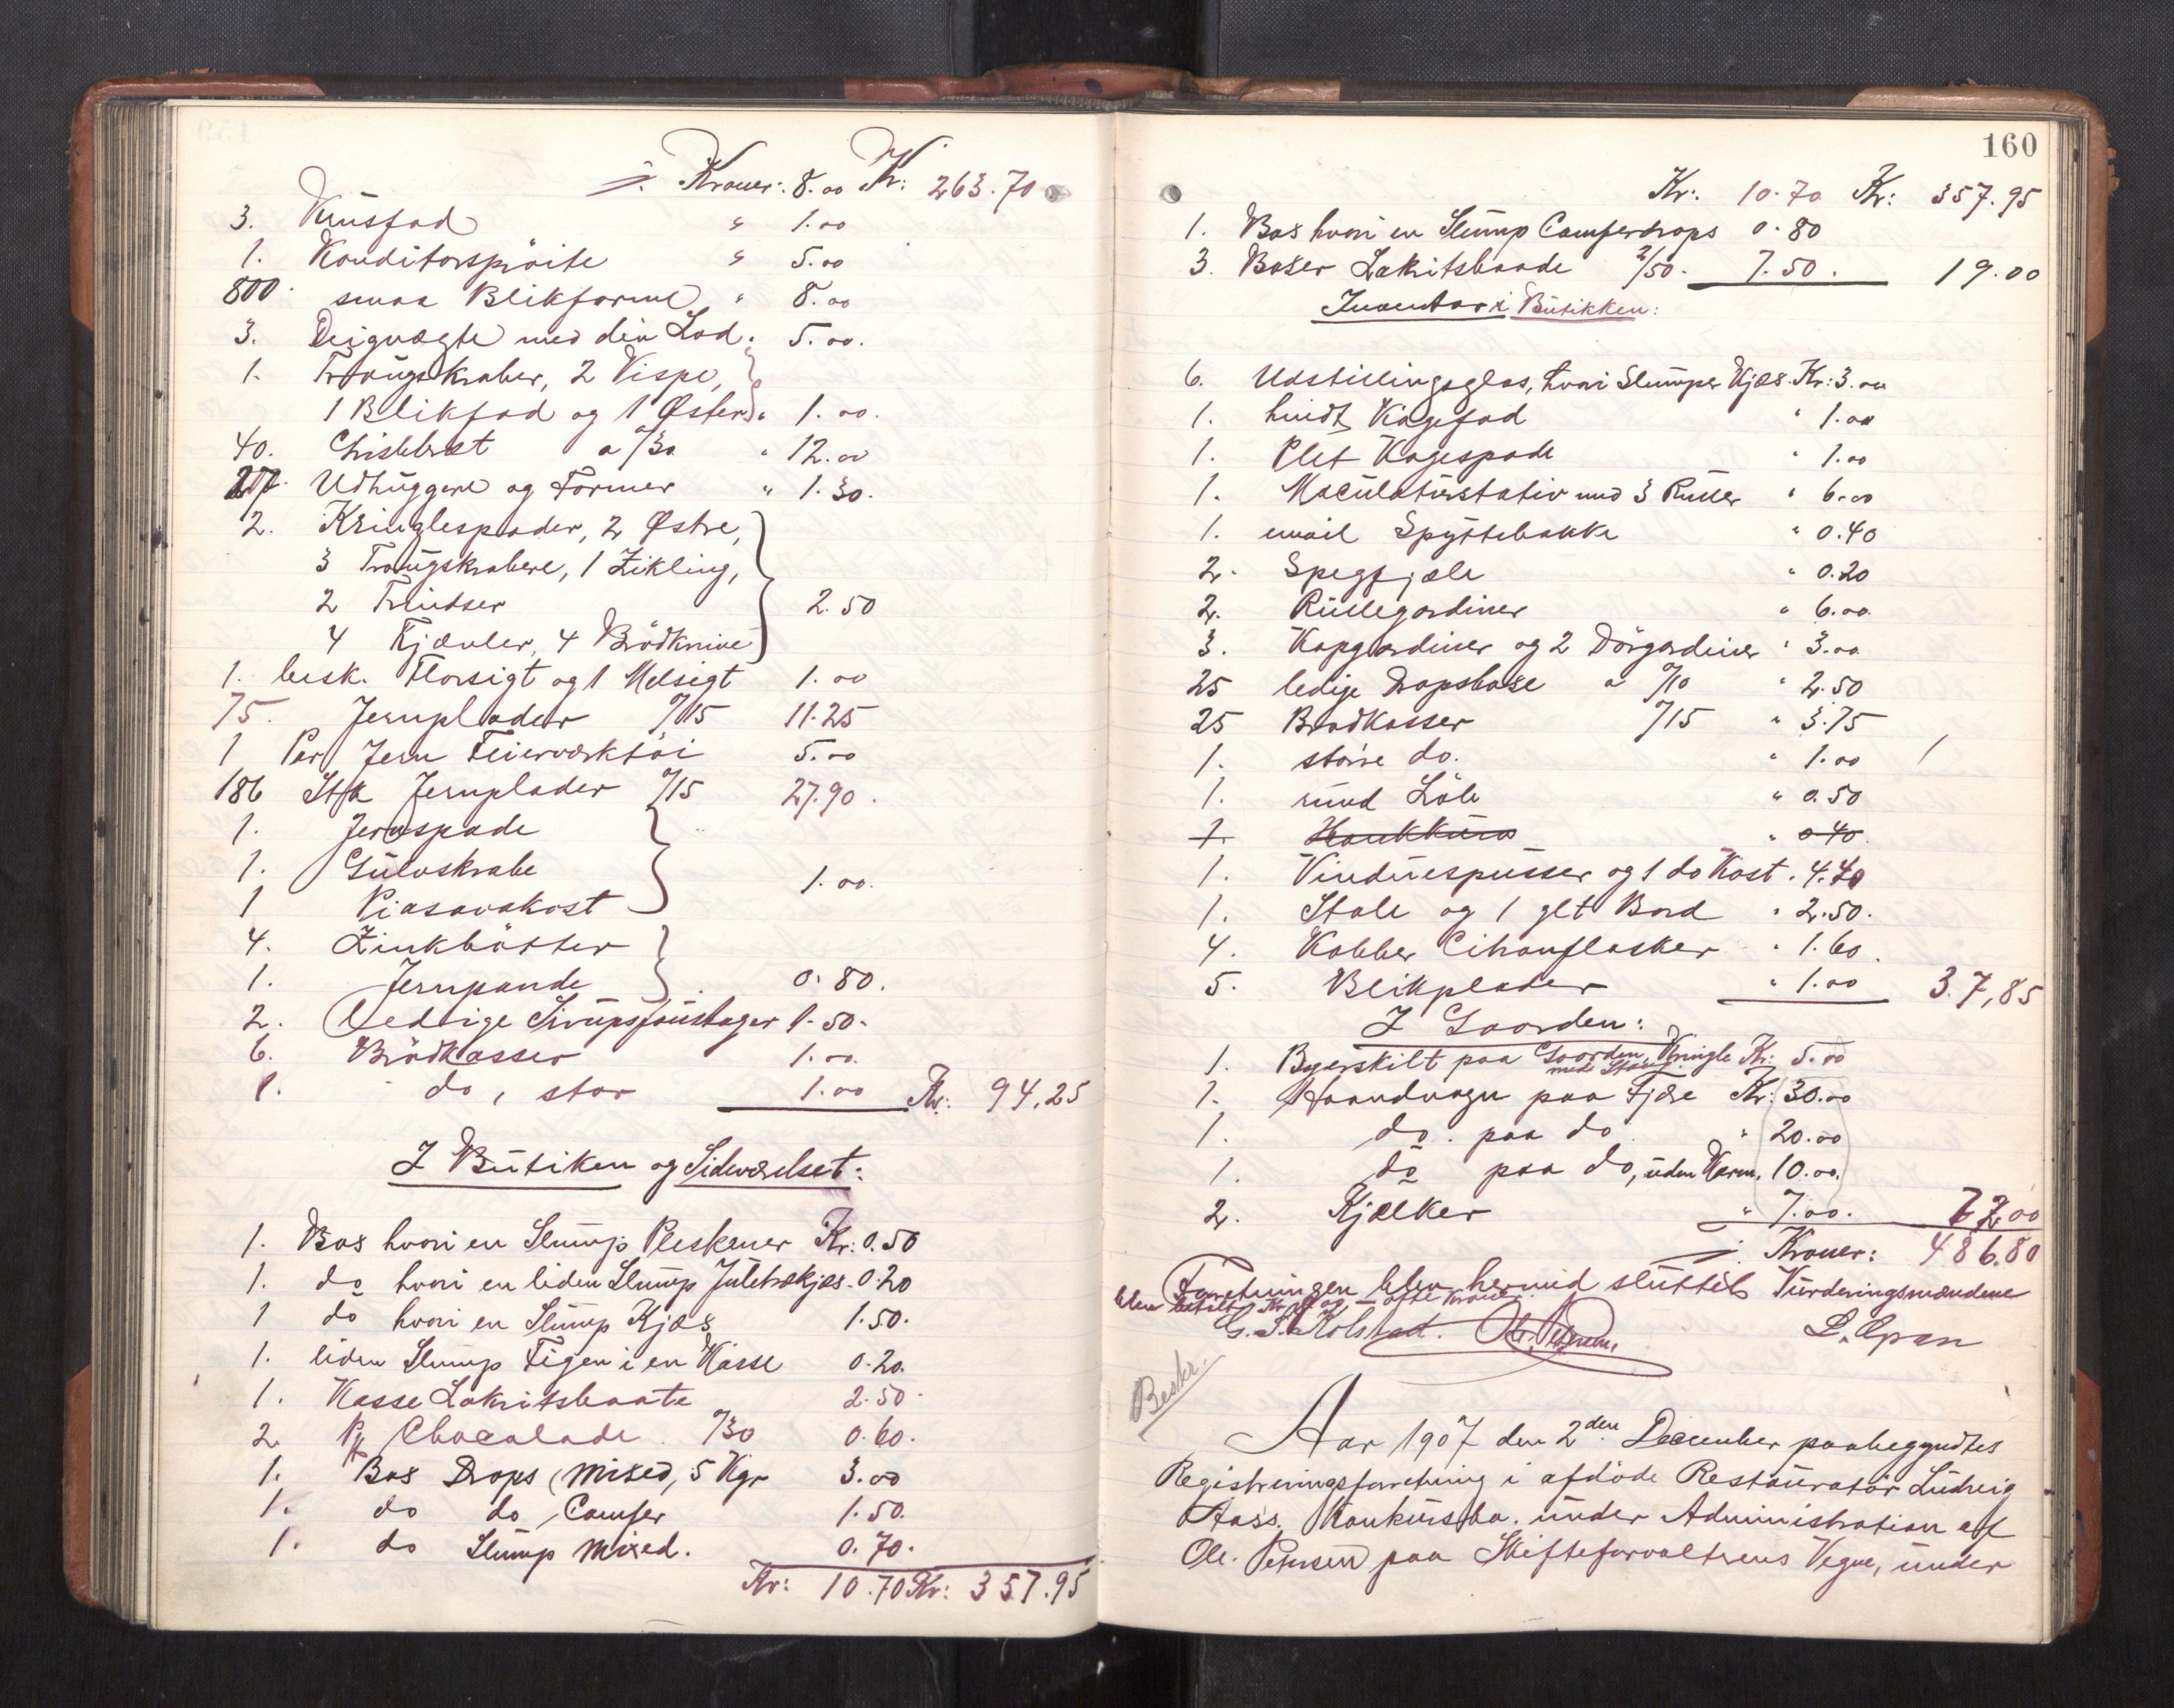 i. Kroner: 8.00 Kr: 263.70
3. Krusfad " 1.00
1. Konditorspröite " 5.00
800. smaa Blikforme " 8.00
3. Deigvægte med div Lod. 5.00.
1. Trougskraber, 2 Vispe,
1 Blikfad og 1 Øster " 1.00.
40. a /30 " 12.00
27. Udhuggere og Former " 1.30.
2. Kringlespader, 2 Østre,
3 Trougskrabere, 1 Zikling,
2 Trindser 2.50
4 Kjævler, 4 Brödknive
1. besk. Florsigt og 1 Melsigt 1.00
75. Jernplader /15 11.25
1 Par Jern Feierværktöi 5.00
186 Stk Jernplader /15 27.90.
1. Jernspade
1. Gulvskrabe 1.00.
1 Piasavakost
4. Zinkbötter
1. Jernpande 0.80.
2. Ledige Sirupsfoustager 1.50.
6. Brödkasser 1.00.
1. do, stor 1.00 Kr: 94.25
I Butiken og Sideværelset:
1. Box hvori en Slump Pleskener Kr: 0.50
1. do hvori en liden Slump Juletrækjæs. 0.20
1 do hvori en Slump Kjæs 1.50.
1. liden Slump Figen i en Kasse 0.20.
1. Kasse Lakritsbaate 2.50.
2. Pk Chocolade /30 0.60.
1. Box Drops (mixed, 5 Kgr 3.00
1. do do Camfer 1.50.
1. do Slump mixed. 0.70.
Kr: 10.70 Kr: 357.95
160
Kr. 10.70 Kr: 357.95
1. Box hvori en Slump Camferdrops 0.80
3. Boxer Lakitsbaade 2/50. 7.50. 19.00
Inventar i Butikken:
6. Udstillingsglas, hvori Slumper Kjæs. Kr: 3.00
1. hvidt Kagefad " 1.00
1. Plet Kagespade " 1.00
1. Maculaturstativ med 3 Ruller " 6.00
1. email Spyttebakke " 0.40
2. Spegfjæle " 0.20
2. Rullegardiner " 6.00.
3. Kapgardiner og 2 Dörgardiner " 3.00
25 ledige Dropsboxe a /10 " 2.50
25 Brödkasser /15 " 3.75
1. större do. " 1.00
1. rund Löb " 0.50
1. Hankkurv " 0.40
1. Vinduespusser og 1 do Kost. 4.40
1. Stole og 1 glt Bord " 2.50.
4. Kobber Citronflasker " 1.60.
5. Blikplader " 1.00 37,85
I Gaarden:
1. Bagerskilt paa Gaarden, Kringle Kr: 5.00
med Stang
1. Haandvogn paa Fjære Kr: 30.00
1. do. paa do. " 20.00
1. do paa do, uden Karm. 10.00.
2. Kjælker " 7.00. 72.00
i. Kroner: 486.80
Forretningen blev hermed sluttet. Vurderingsmændene
blev betalt Kr 8 og — otte Kroner.
G. S. Kolstad. Ole Petersen. L. Open
Beskr.
Aar 1907 den 2den December paabegyndtes
Registreringsforretning i afdöde Restauratör Ludvig
Aass. Konkursbo. under Administration af
Ole. Petersen paa Skifteforvalterens Vegne, under